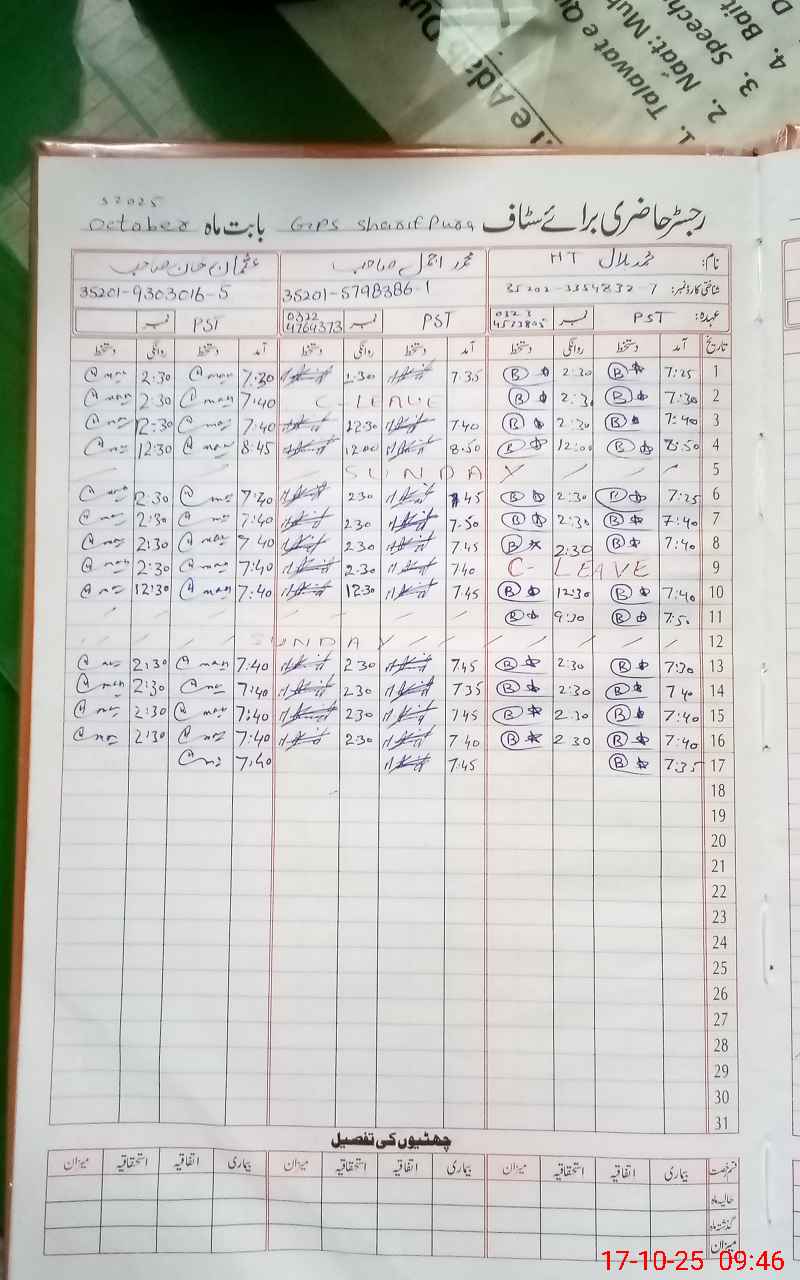 1. Talawat e Qu
2. Naat: Muh
3. Speech
4. Bait
2025
رجسٹر حاضری برائے سٹاف GPS Sharif Pura بابت ماہ October
نام: محمد بلال HT محمد اجمل صاحب عثمان خان صاحب
شناختی کارڈ نمبر: 35202-3354832-7 35201-5798386-1 35201-9303016-5
عہدہ: PST نمبر 0323 4573805 PST نمبر 0322 4764373 PST نمبر
تاریخ آمد دستخط روانگی دستخط آمد دستخط روانگی دستخط آمد دستخط روانگی دستخط
1 7:25 B 2:30 B 7:35 1:30 7:30 2:30
2 7:30 B 2:30 B C-LEAVE 7:40 2:30
3 7:40 B 2:30 B 7:40 12:30 7:40 12:30
4 8:50 B 12:00 B 8.50 12:00 8:45 12:30
5 SUNDAY
6 7:25 B 2:30 B 7:45 2:30 7:40 2:30
7 7:40 B 2:30 B 7.50 2:30 7:40 2:30
8 7:40 B 2:30 B 7.45 2:30 7:40 2:30
9 C-LEAVE 7:40 2:30 7:40 2:30
10 7:40 B 12:30 B 7.45 12:30 7:40 12:30
11 7:50 B 9:30 B
12 SUNDAY
13 7:30 B 2:30 B 7:45 2:30 7:40 2:30
14 7:40 B 2:30 B 7:35 2:30 7:40 2:30
15 7:40 B 2:30 B 7:45 2:30 7:40 2:30
16 7:40 B 2:30 B 7:40 2:30 7:40 2:30
17 7:35 B 7:45 7:40
18
19
20
21
22
23
24
25
26
27
28
29
30
31
چھٹیوں کی تفصیل
قسم رخصت بیماری اتفاقیہ استحقاقیہ میزان بیماری اتفاقیہ استحقاقیہ میزان بیماری اتفاقیہ استحقاقیہ میزان
حالیہ ماہ
گذشتہ ماہ
میزان
17-10-25 09:46